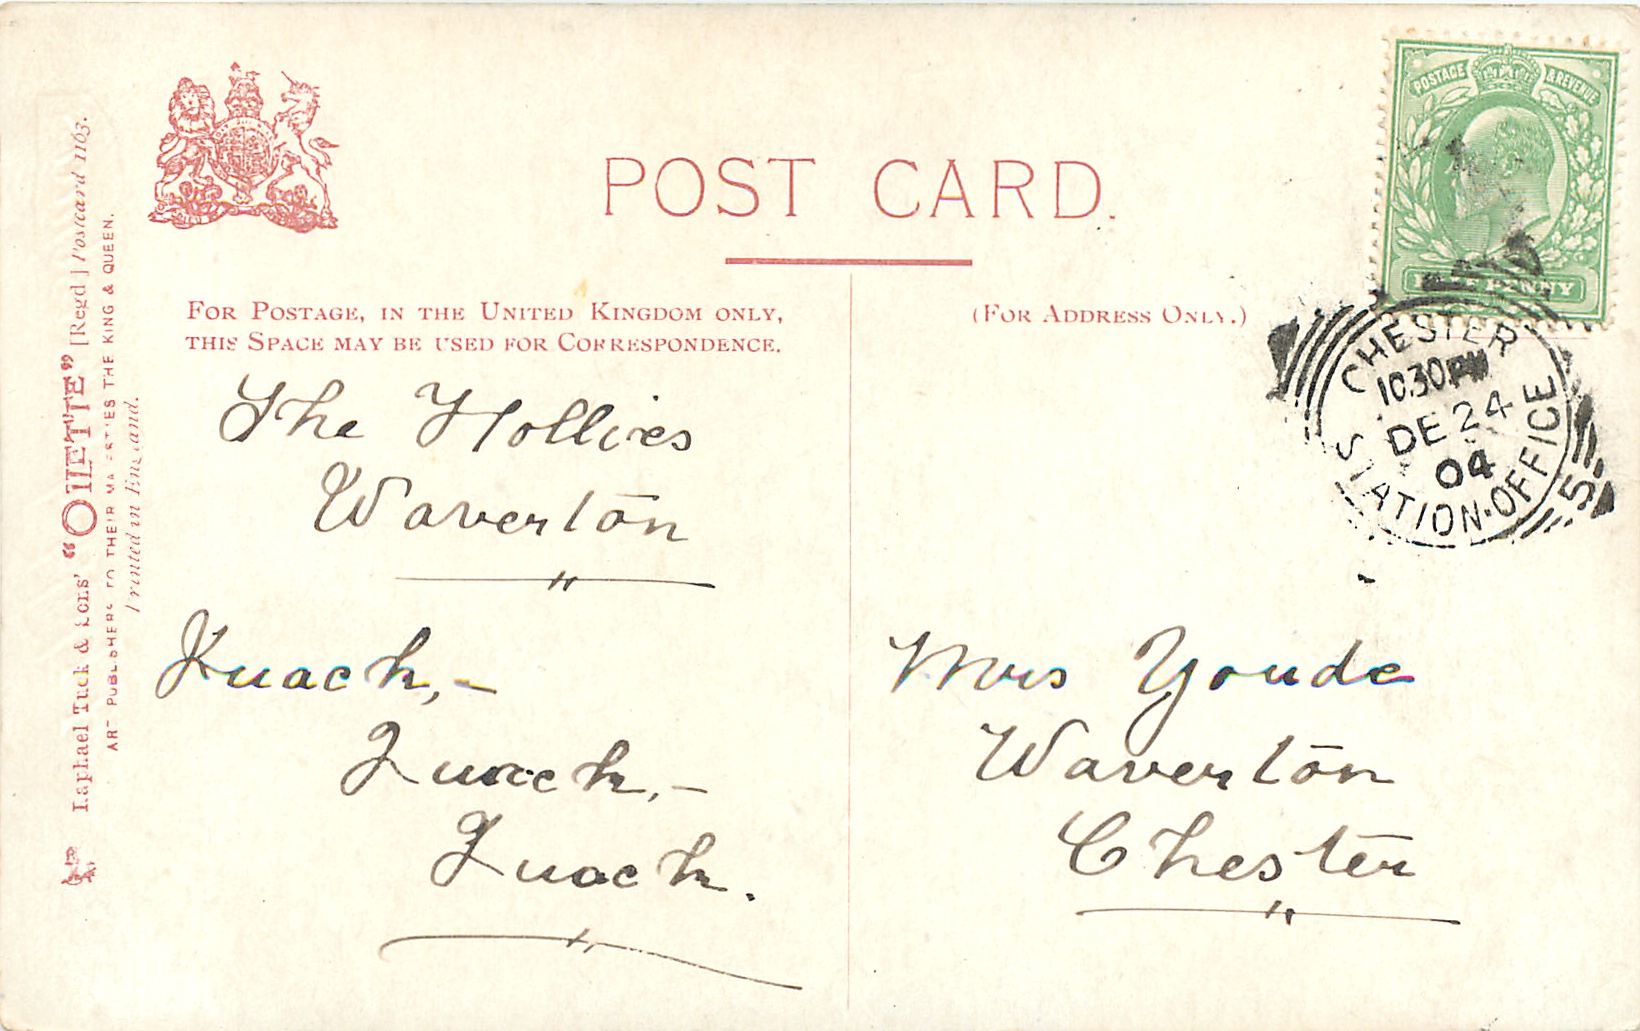 POST CARD.
FOR POSTAGE, IN THE UNITED KINGDOM ONLY,
THIS SPACE MAY BE USED FOR CORRESPONDENCE.
(FOR ADDRESS ONLY.)
The Hollies
Waverton
Quack,-
Quack,-
Quack.
Mrs Youde
Waverton
Chester
POSTAGE & REVENUE
HALF PENNY
CHESTER
10.30PM
DE 24
04
STATION-OFFICE
5
Raphael Tuck & Sons' "OILETTE" [Regd] Postcard 1163.
ART PUBLISHERS TO THEIR MAJESTIES THE KING & QUEEN.
Printed in England.